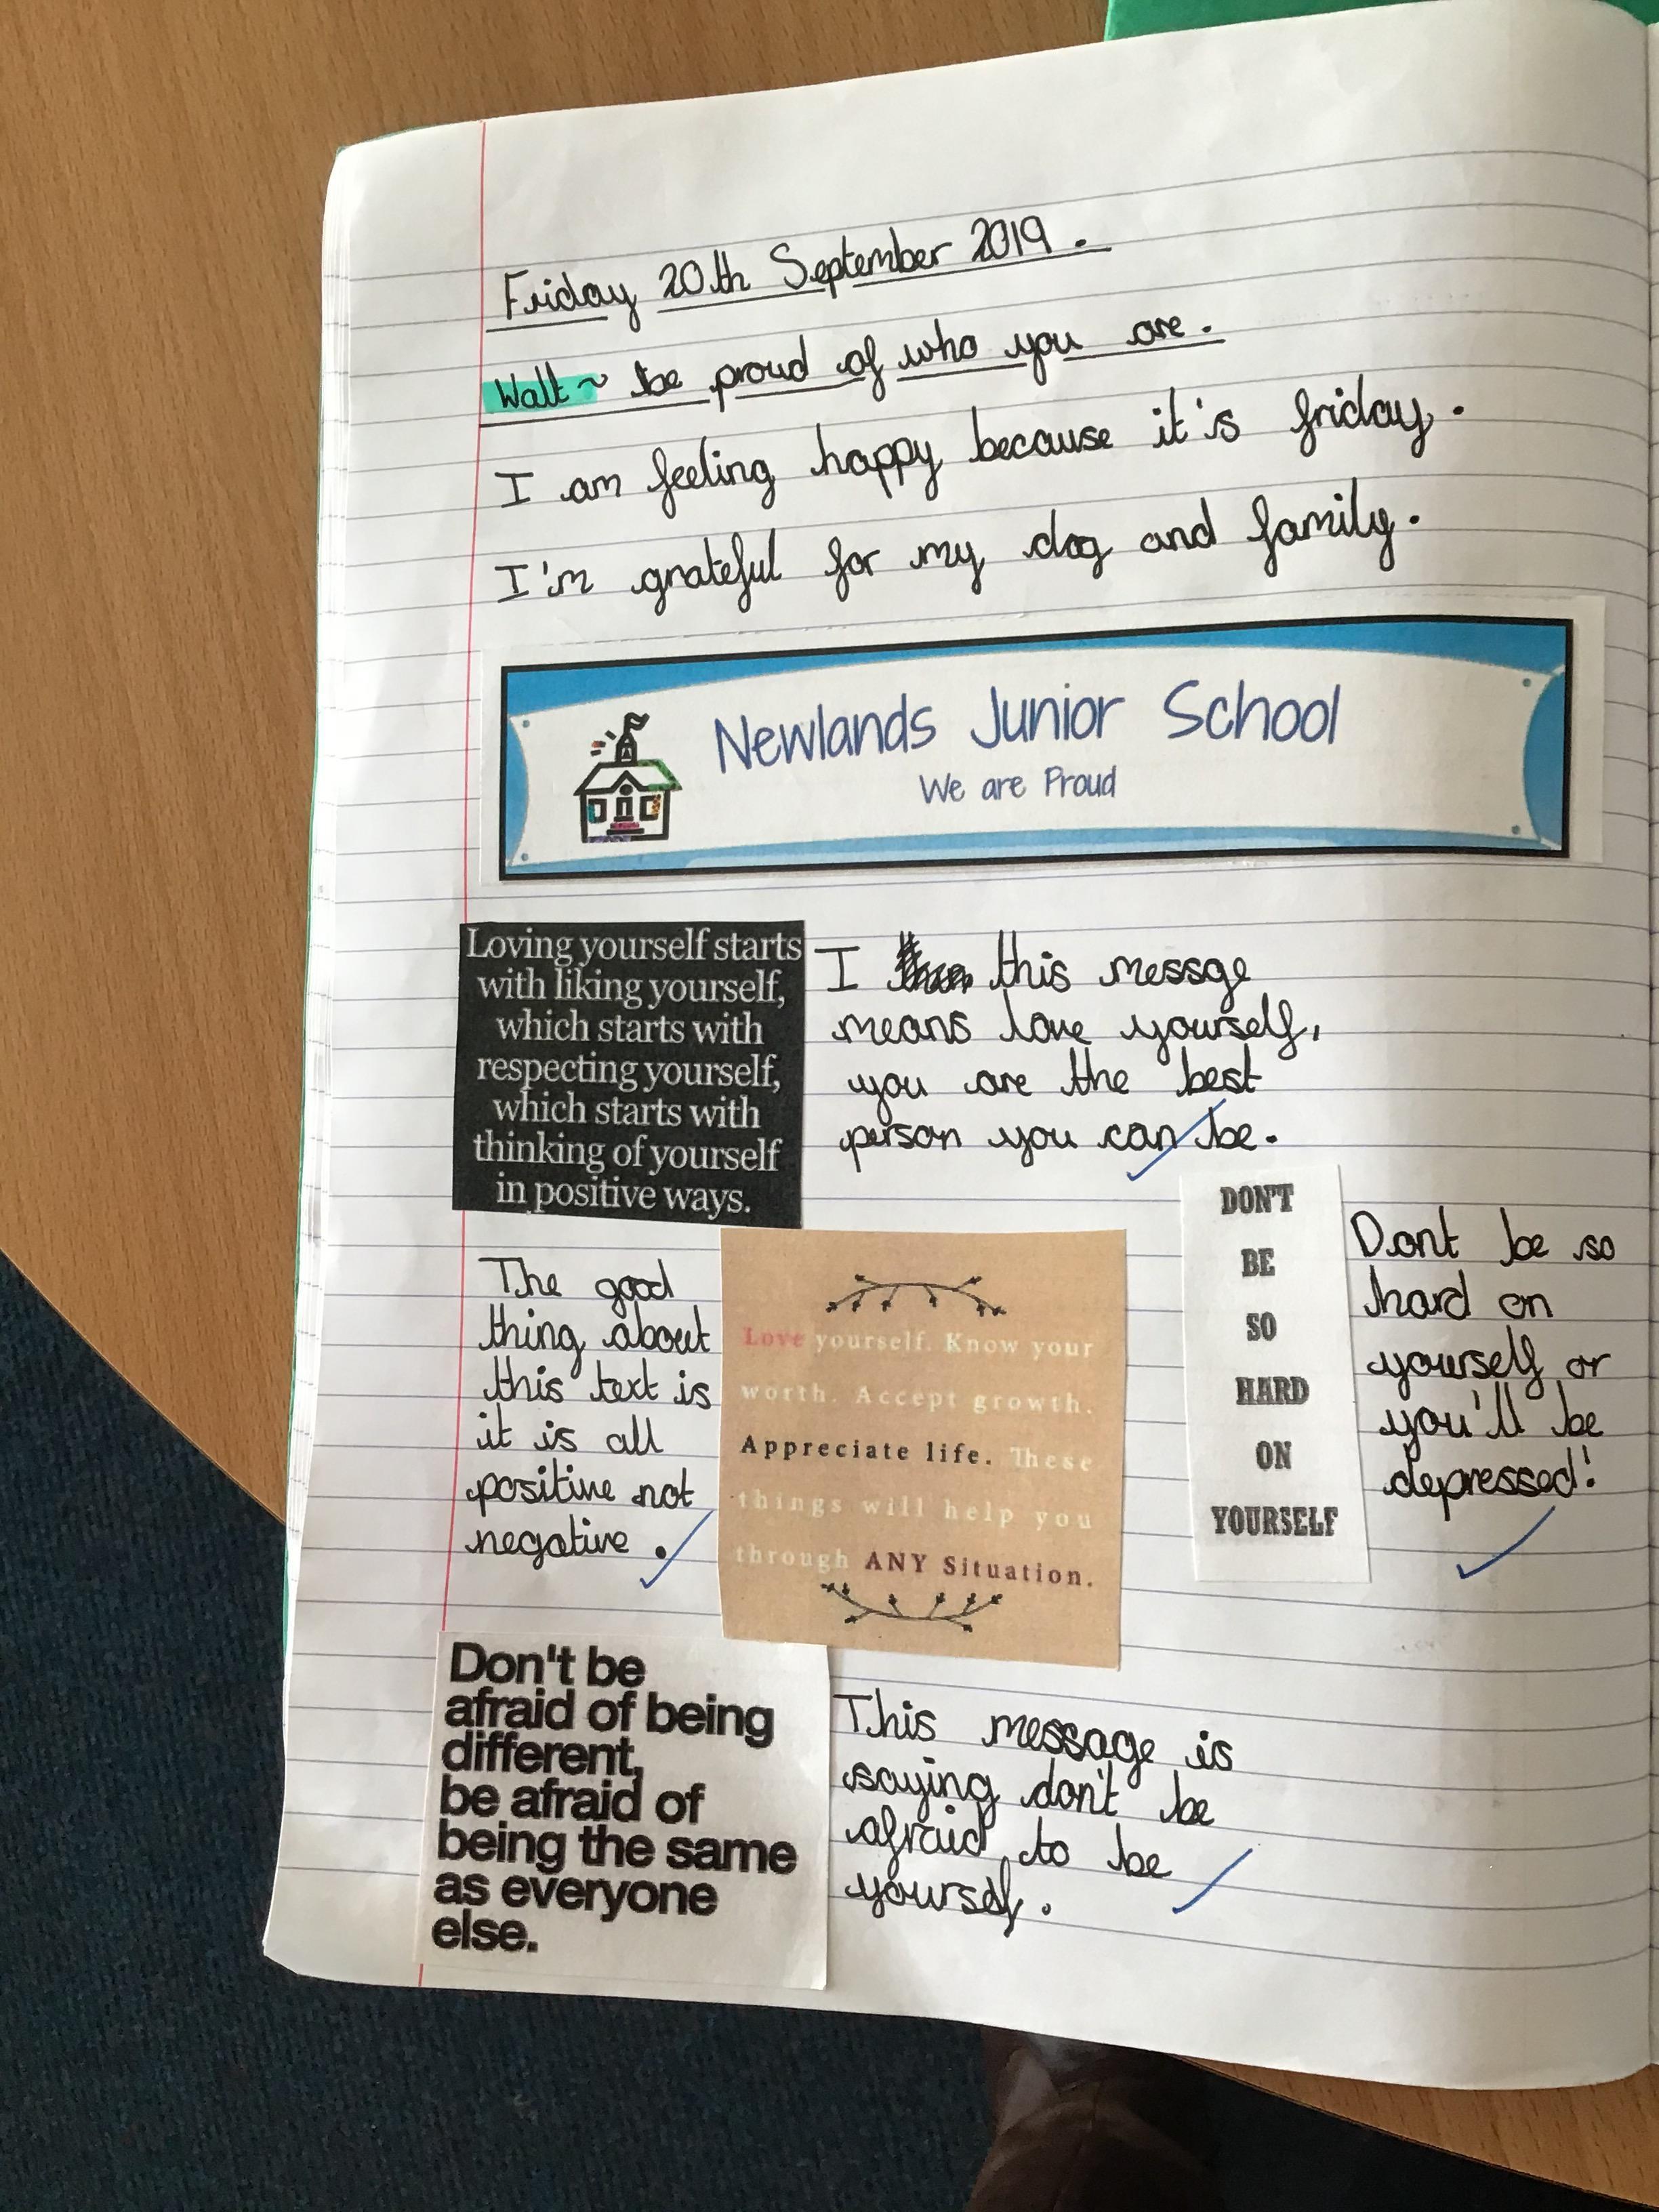 Friday 20th September 2019.
Walt ~ be proud of who you are.
I am feeling happy because it's friday.
I'm grateful for my dog and family.
Newlands Junior School
We are Proud
Loving yourself starts
with liking yourself,
which starts with
respecting yourself,
which starts with
thinking of yourself
in positive ways.
I this messge
means love yourself,
you are the best
person you can be.
The good
thing about
this text is
it is all
positive not
negative.
Love yourself. Know your
worth. Accept growth.
Appreciate life. These
things will help you
through ANY Situation.
DON'T
BE
SO
HARD
ON
YOURSELF
Dont be so
hard on
yourself or
you'll be
depressed!
Don't be
afraid of being
different,
be afraid of
being the same
as everyone
else.
This message is
saying don't be
afraid to be
yourself.